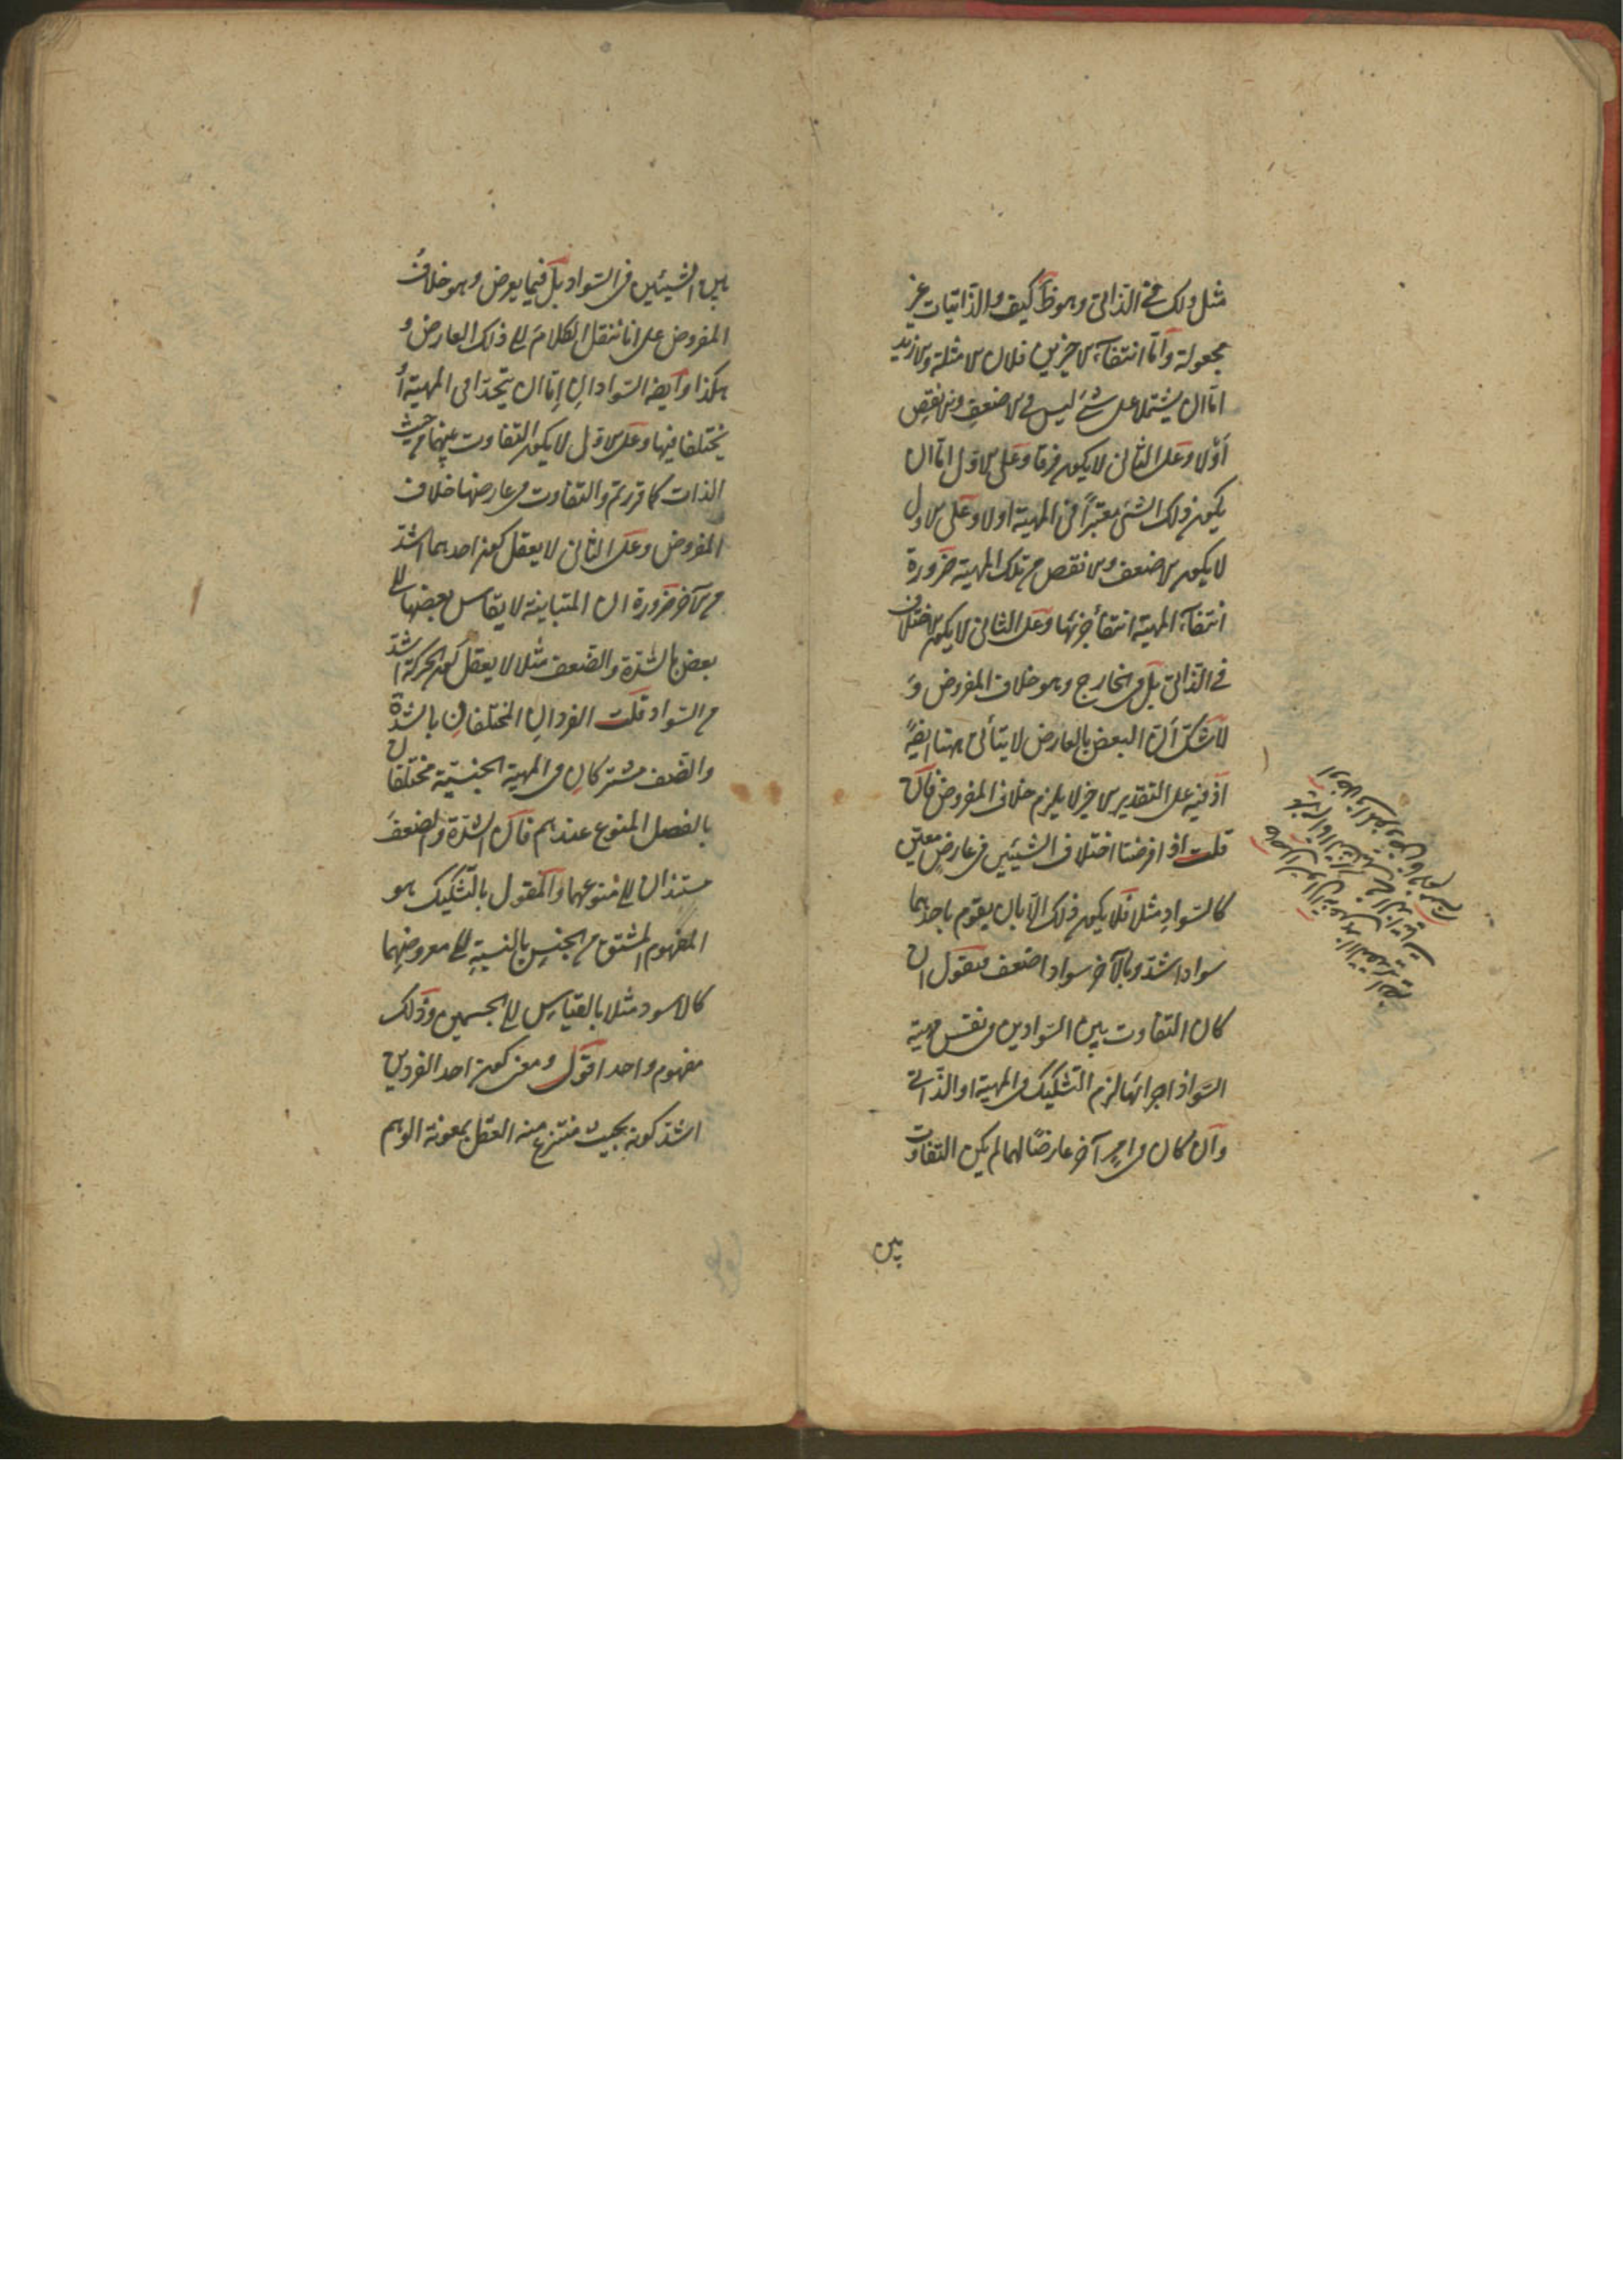 مثل ذلك في الذاتي وهو ظ كيف والذاتيات غير
مجعولة وأما انتفاء الاخيرين فلان الامثلة والازيد
اما ان يشتملا على شئ ليس في الاضعف والانقص
أولا وعلى الثاني لا يكون فرقا وعلى الاول اما ان
يكون ذلك الشئ معتبرا في المهية اولا وعلى الاول
لا يكون الاضعف والانقص من تلك المهية ضرورة
انتفاء المهية انتفأ جزئها وعلى الثاني لا يكون الاختلاف
في الذاتي بل في الخارج وهو خلاف المفروض و
لا شك أن البعض بالعارض لا يتأتى ههنا ايضا
اذ فيه على التقدير الاخير لا يلزم خلاف المفروض فان
قلت اذا فرضنا اختلاف الشيئين في عارض معين
كالسواد مثلا فلا يكون ذلك الا بان يقوم باحدهما
سواد اشد وبالآخر سواد اضعف فنقول ان
كان التفاوت بين السوادين في نفس مهية
السواد اجزائها لزم التشكيك في المهية او الذاتي
وان كان في امر آخر عارضا لهما لم يكن التفاوت
بين
بين الشيئين في السواد بل فيما يعرض وهو خلاف
المفروض على انا ننقل الكلام الى ذلك العارض و
هكذا وايضا السوادان إما ان يتحدا في المهية أو
يختلفا فيها وعلى الاول لا يكون التفاوت بينهما من حيث
الذات كما قررتم والتفاوت في عارضها خلاف
المفروض وعلى الثاني لا يعقل كون احدهما اشد
من الآخر ضرورة ان المتباينة لا يقاس بعضها الى
بعض بالشدة والضعف مثلا لا يعقل كون الحركة اشد
من السواد قلت الفردان المختلفان بالشدة
والضعف مشتركان في المهية الجنسية مختلفان
بالفصل المنوع عندهم فان الشدة والضعف
مستندان الى منوعهما والمقول بالتشكيك هو
المفهوم المشتق من الجنس بالنسبة الى معروضهما
كالاسود مثلا بالقياس الى الجسمين وذلك
مفهوم واحد اقول ومعنى كون احد الفردين
اشد كونه بحيث ينتزع منه العقل بمعونة الوهم